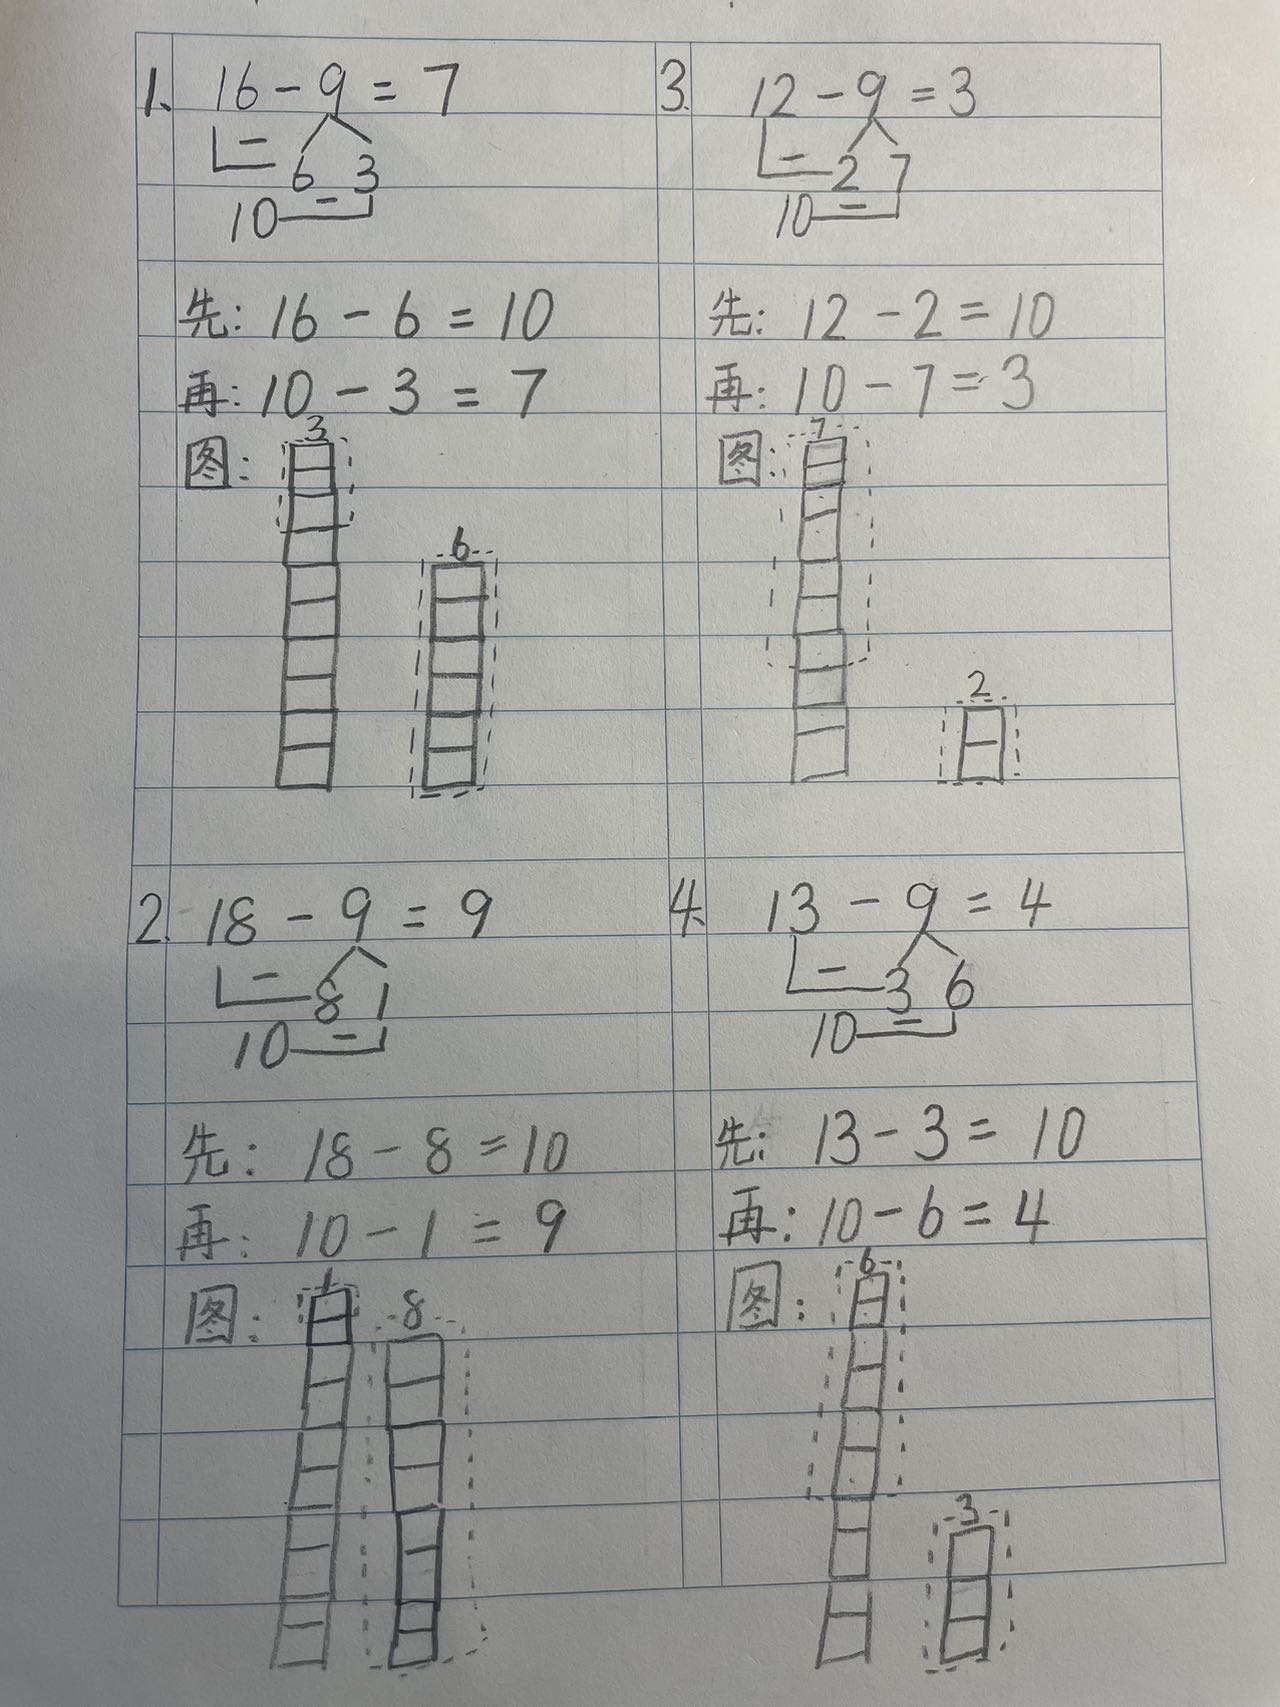 1. 16-9=7
6 3
10
先: 16-6=10
再: 10-3=7
图:
3
6
2. 18-9=9
8 1
10
先: 18-8=10
再: 10-1=9
图:
1
8
3. 12-9=3
2 7
10
先: 12-2=10
再: 10-7=3
图:
7
2
4. 13-9=4
3 6
10
先: 13-3=10
再: 10-6=4
图:
6
3